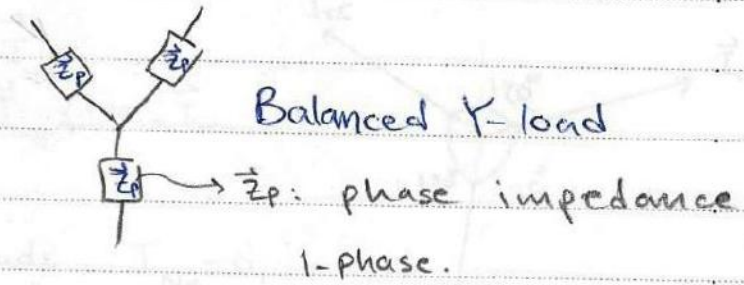 z⃗p z⃗p
Balanced Y-load
z⃗p → z⃗p: phase impedance
1-phase.